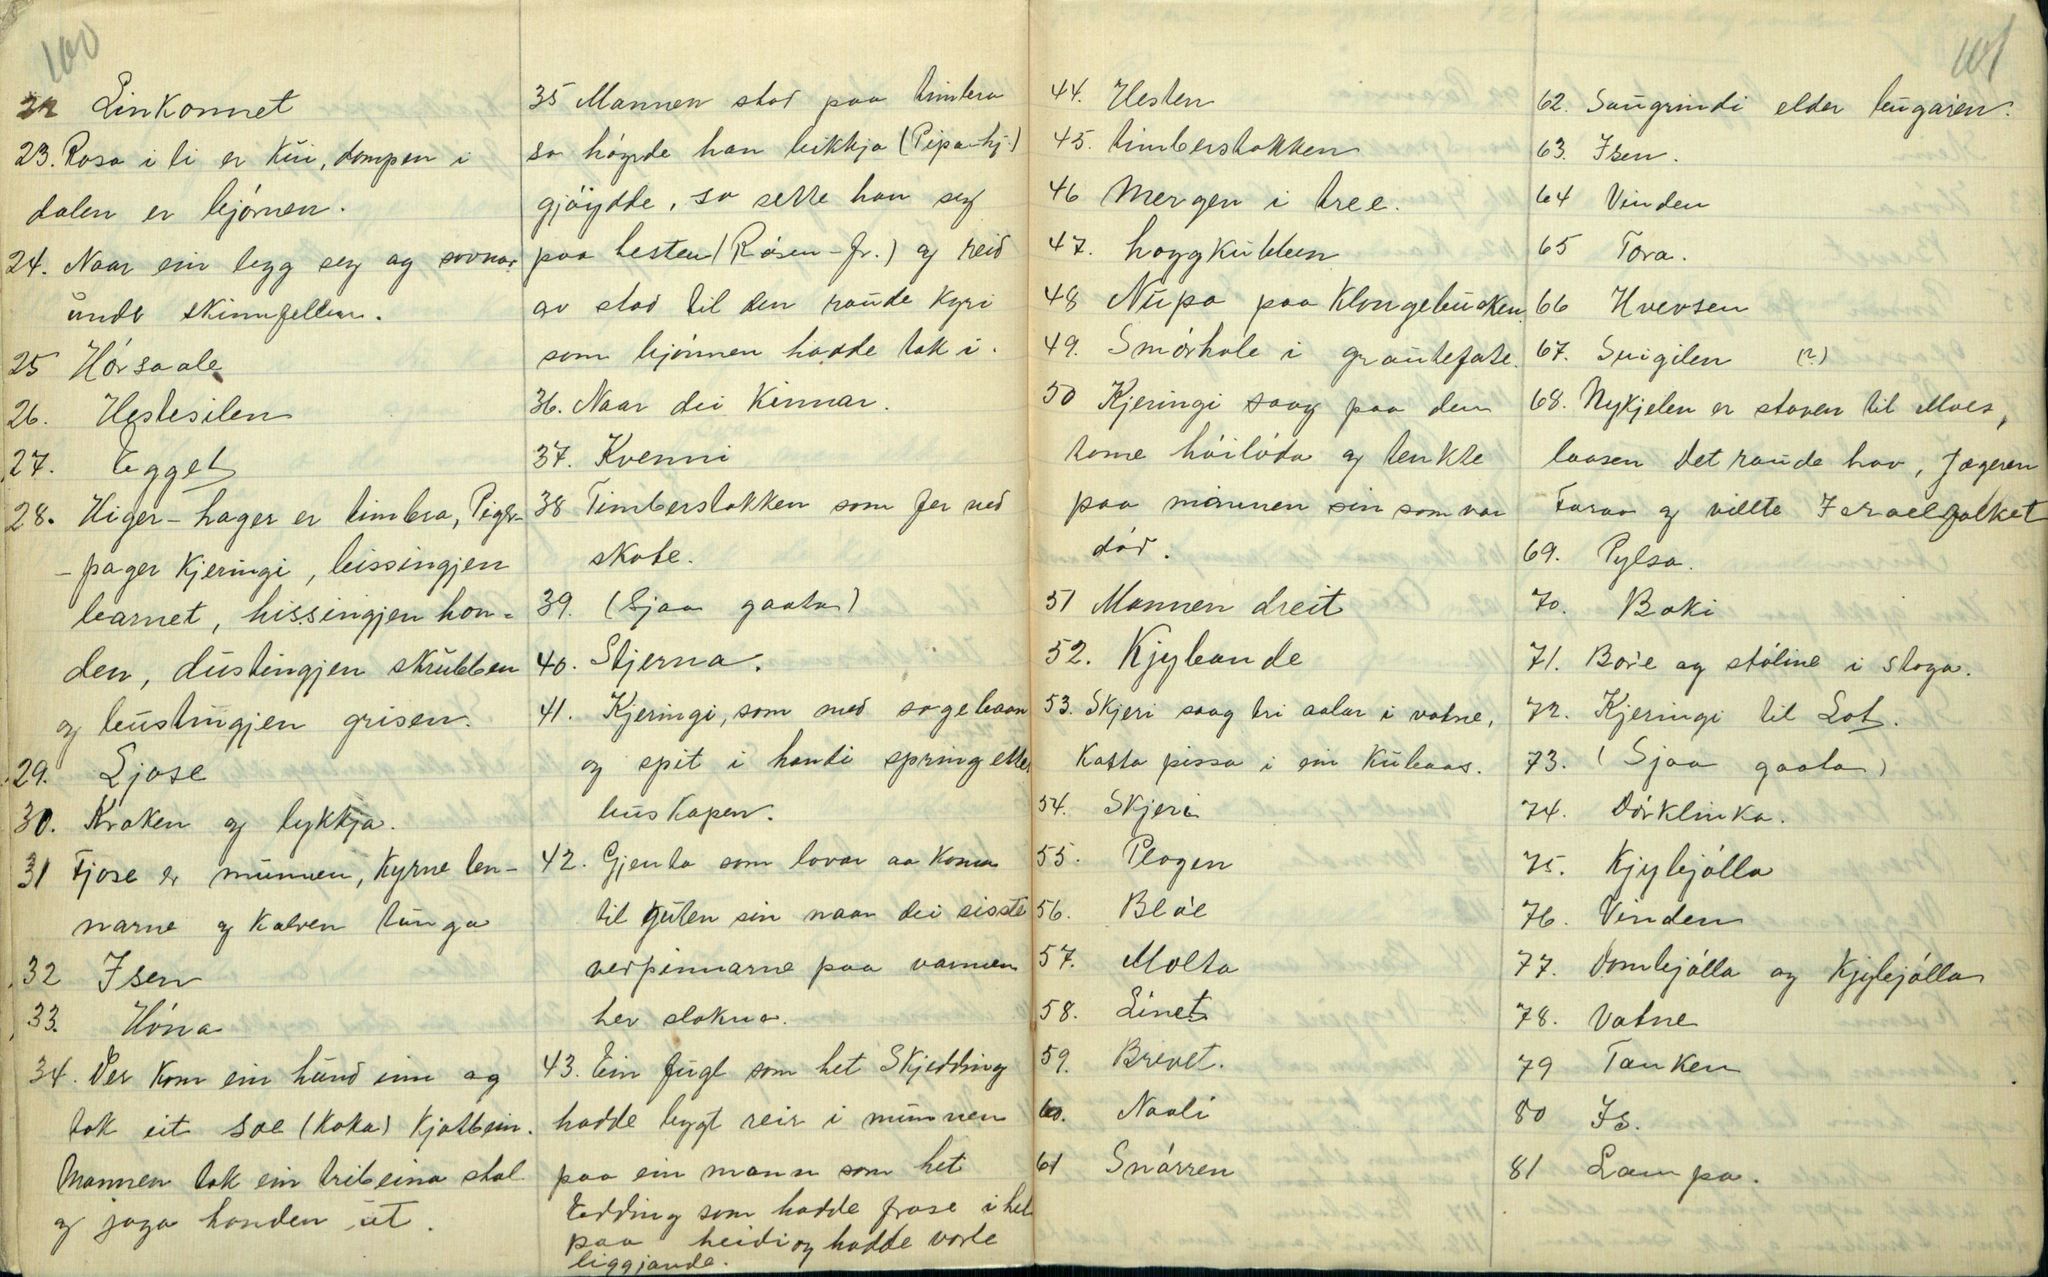 100
22 Linkonnet
23. Rosa i li er kui, dompen i
dalen er bjórnen.
24. Naar ein legg seg og sovnar
unde skinnfellen.
25 Hórsaale
26. Hestesilen
27. Egget
28. Higer-hager er timbra, Piger-
-pager kjeringi, bissingjen
barnet, hissingjen hon-
den, dustingjen skrubben
og bustingjen grisen.
29. Ljose
30. Kroken og lykkja.
31 Fjose er munnen, kyrne ten-
narne og kalven tunga
32 Isen
33. Hóna
34. Der kom ein hund inn og
tok eit soe (koka) kjotbein.
Mannen tok ein tribeina stol
og joga honden ut.
35 Mannen stod paa timbra
so hóyrde han bikkja (Pipa-hj.)
gjóydde, so sette han seg
paa hesten (Rósen-fr.) og reid
av stad til den raude kyri
som bjónnen hadde tok i.
36. Naar dei kinnar.
37. Kvenni
38 Timberstokken som fer ned
skote.
39. (Sjaa gaata)
40. Stjerna.
41. Kjeringi, som med sogebaan
og spit i handi spring etter
buskapen.
42. Gjenta som lovar aa koma
til guten sin naar dei sisste
vedpinnarne paa varmen
her slokna.
43. Ein fugl som het Skjedding
hadde bygt reir i munnen
paa ein mann som het
Edding som hadde frose i hel
paa heidi og hadde vorte
liggjande.
101
44. Hesten
45. timberstokken
46 Mergen i tree.
47. hoggkubben
48 Nupa paa klongebusken.
49. Smórhole i grautefate.
50 Kjeringi saag paa den
tome hóilóda og tenkte
paa mannen sin som var
dód.
51 Mannen dreit
52. Kjybande
53. Skjeri saag tri aalar i vatne,
Katta pissa i ein kubaas.
54. Skjeri
55. Plogen
56. Blóe
57. Molta
58. Linet
59. Brevet.
60. Naali
61 Snórren
62. Saugrindi elder bugaren.
63. Isen.
64 Vinden
65 Tora.
66 Hversen
67. Suigilen (?)
68. Nykjelen er staven til Moes,
laasen det raude hav, Jegeren
Farao og villte Israelfolket
69. Pylsa.
70. Boki
71. Bore og stóline i stoga.
72. Kjeringi til Lot.
73. (Sjaa gaata)
74. Dórklinka.
75. Kjybjólla
76. Vinden
77. Dombjólla og kjybjólla
78. Vatne
79 Tanken
80 Is.
81 Lampa.